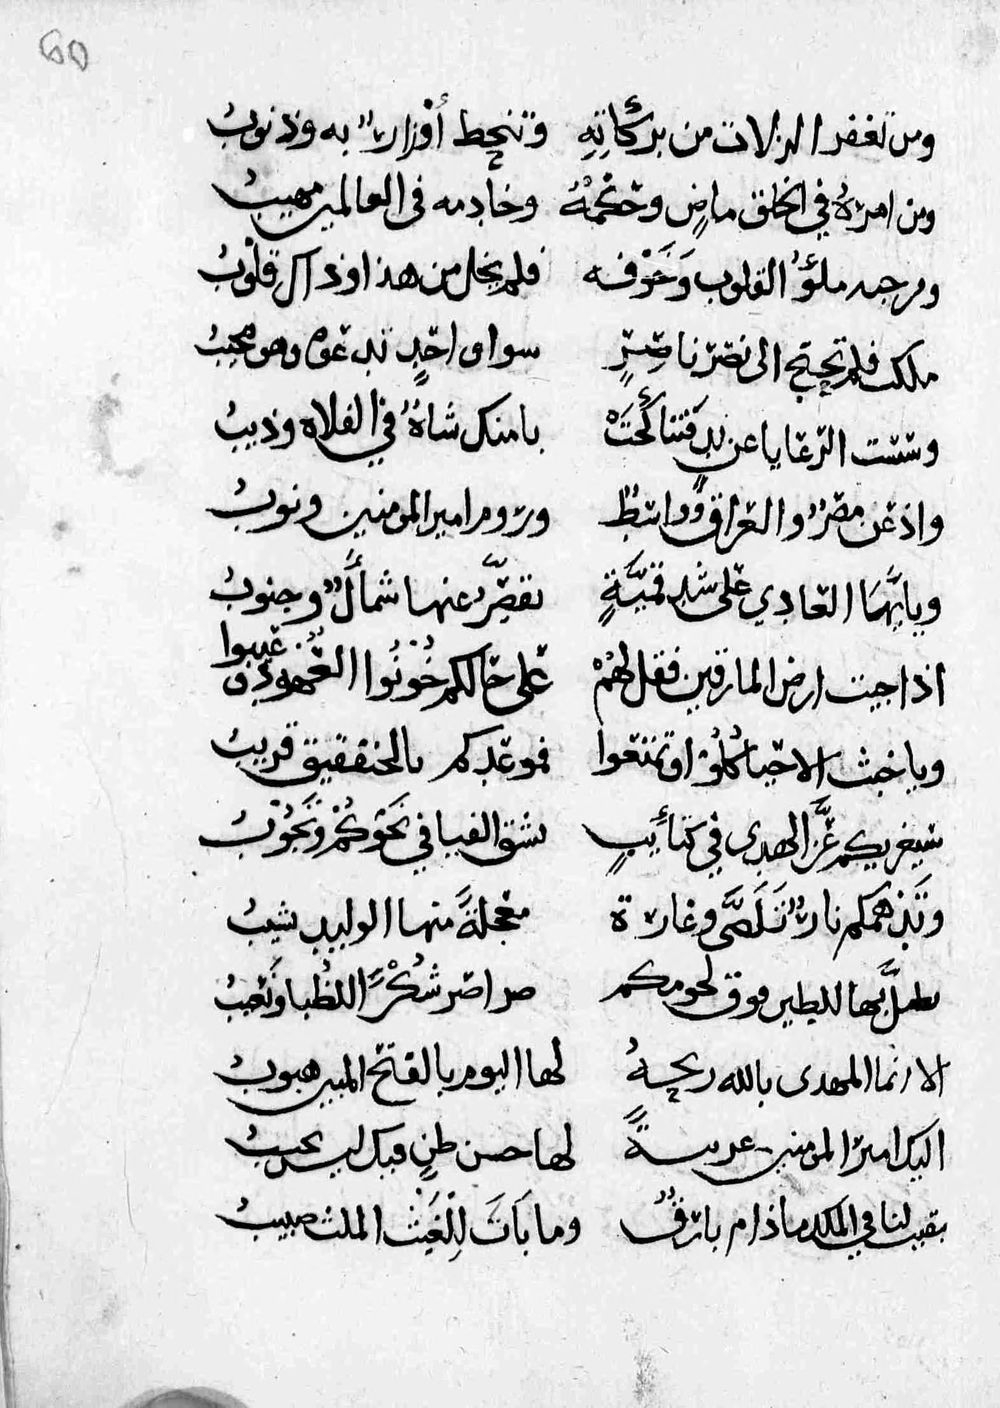 60
ومن تغفر الزلات من بركاته وتنحط أوزار به وذنوب
ومن امره في الخلق ماض وحكمه وخادمه في العالمين مهيب
ومن حبه ملؤ القلوب وخوفه فلم يخل من هذا وذاك قلوب
ملكت فلم تحتج الى نصر ناصر سوا واحد تدعوه وهو مجيب
وسست الرعايا عن يد فتناكحت بامنك شاة في الفلاه وذيب
واذعن مصر والعراق وواسط وروم امير المومنين ونوب
ويايها الغادي على شدقمية تقصر عنها شمأل وجنوب
اذا جيت ارض المارقين فقل لهم على حالكم خونوا العهود وغيبوا
ويا خبث الاحيا كلو او تمتعوا فموعدكم بالخنفقيق قريب
سيغزيكم عز الهدى في كتائب تشق الفيافي نحوكم وتجوب
وتدهمكم نار تلظى وغارة معجلة منها الوليد يشيب
يطل بها للطير فوق لحومكم صراصر شكر اللظبا ونعيب
الا انما المهدى بالله ريحه لها اليوم بالفتح المبين هبوب
اليك امير المومنين عربية لها حسن ظن فيك ليس يخيب
بقيت لنا في الملك ماذام بارق وما بات للغيث الملث صبيب